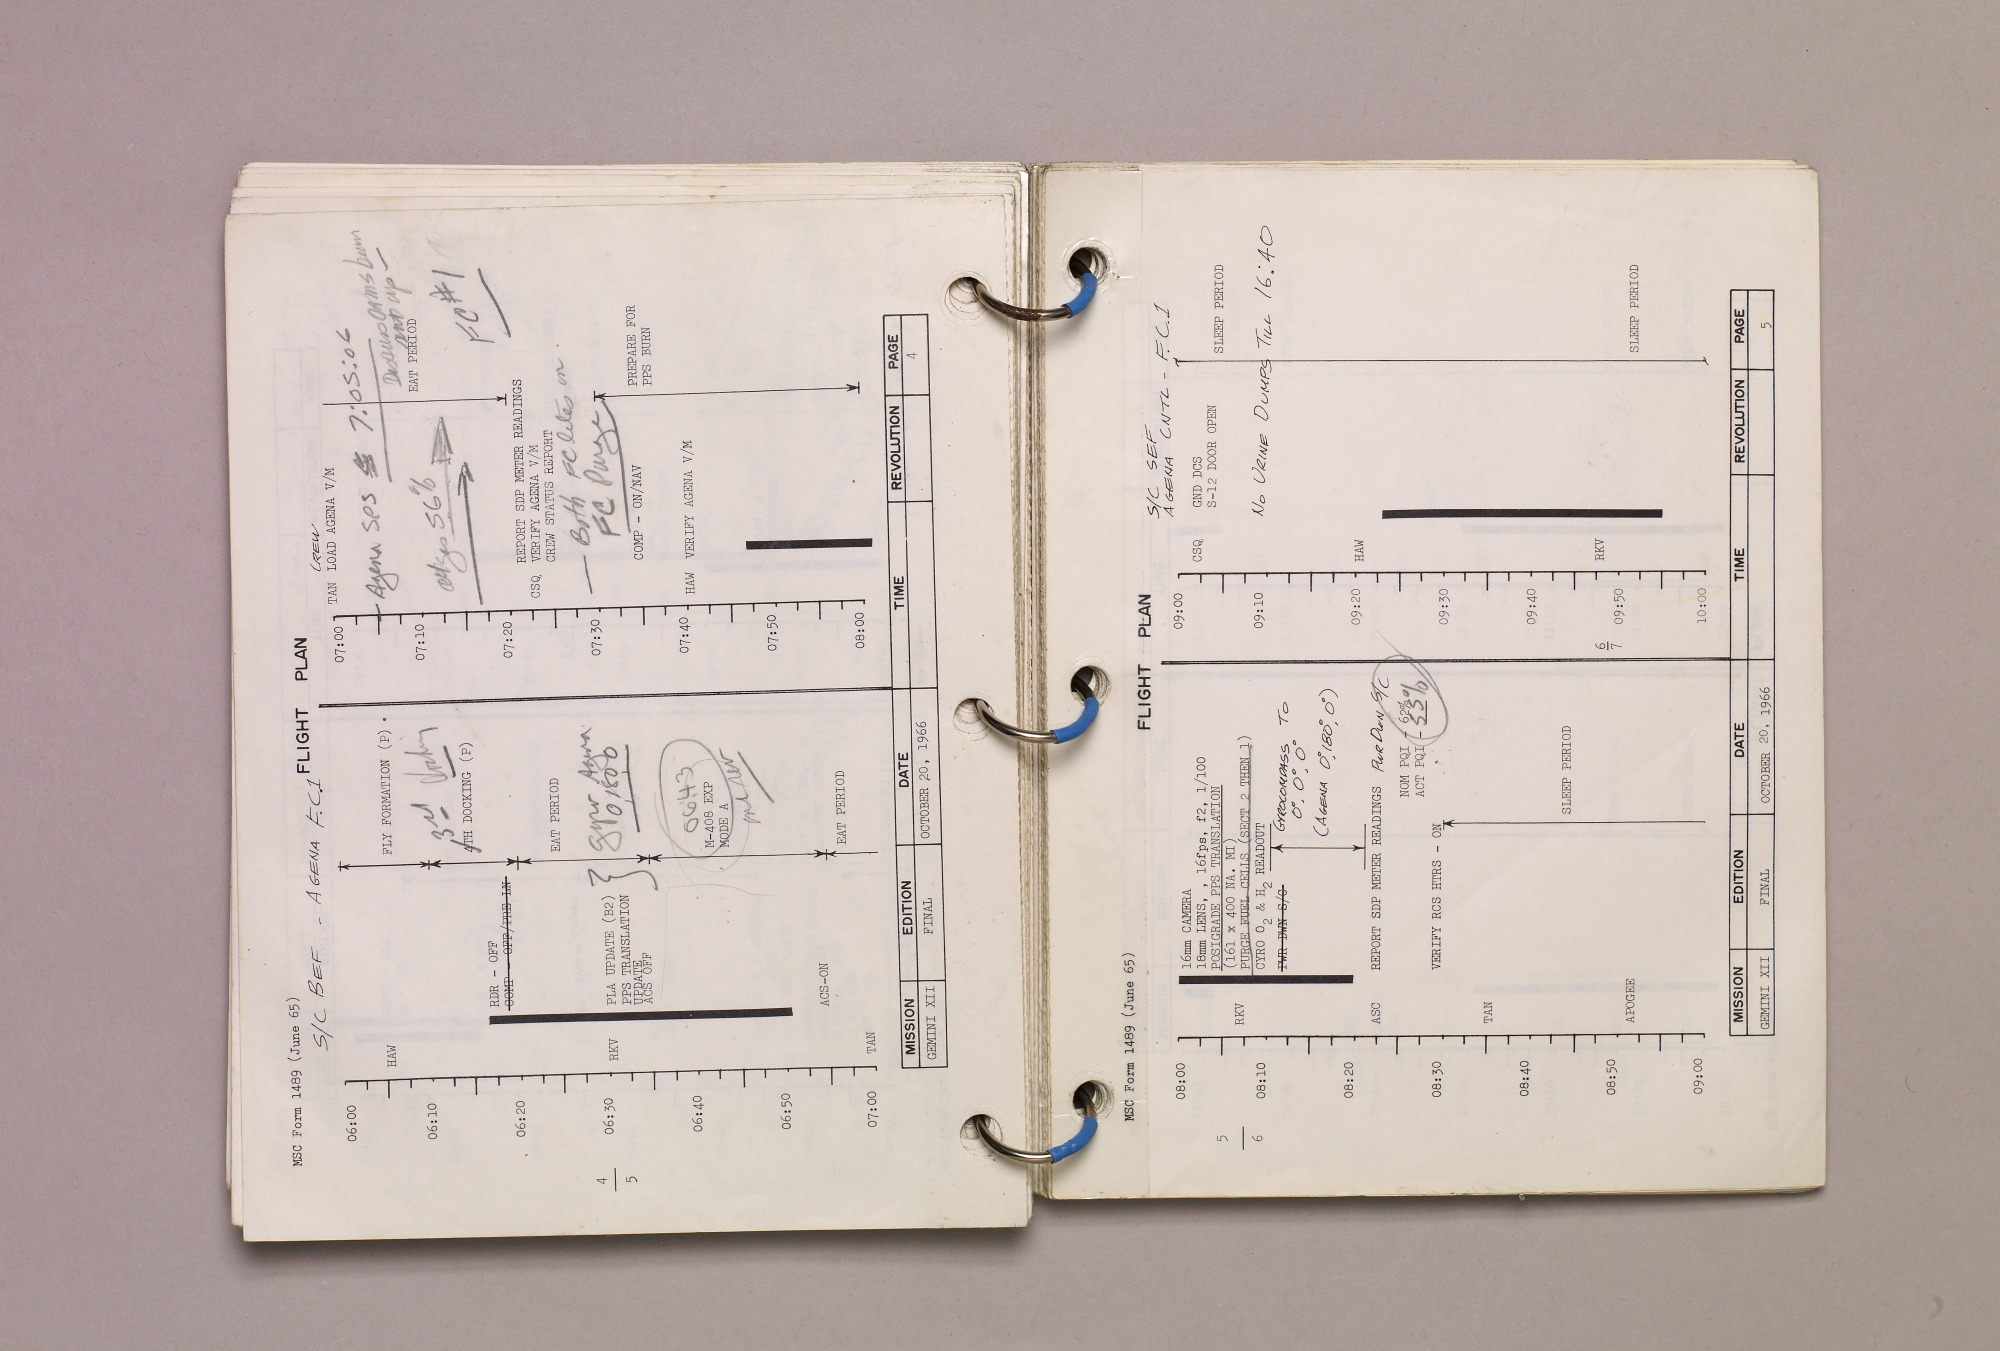 MSC Form 1489 (June 65)
FLIGHT PLAN
S/C BEF - AGENA F.C.1
06:00
06:10
06:20
06:30
06:40
06:50
07:00
4
5
HAW
RKV
TAN
FLY FORMATION (P)
3rd docking
4TH DOCKING (P)
RDR - OFF
COMP - OFF/PRE LN
EAT PERIOD
PLA UPDATE (B2)
PPS TRANSLATION
UPDATE
ACS OFF
Gyro Agena
0643
M-408 EXP
MODE A
ACS-ON
EAT PERIOD
07:00
07:10
07:20
07:30
07:40
07:50
08:00
CREW
TAN LOAD AGENA V/M
Agena SPS 7:05:06
burn
EAT PERIOD
56%
FC #1
REPORT SDP METER READINGS
CSQ VERIFY AGENA V/M
CREW STATUS REPORT
- Both FC lites on.
FC Purge
COMP - ON/NAV
PREPARE FOR
PPS BURN
HAW VERIFY AGENA V/M
MISSION EDITION DATE TIME REVOLUTION PAGE
GEMINI XII FINAL OCTOBER 20, 1966 4
MSC Form 1489 (June 65)
FLIGHT PLAN
08:00
08:10
08:20
08:30
08:40
08:50
09:00
5
6
RKV
ASC
TAN
APOGEE
16mm CAMERA
18mm LENS, 16fps, f2, 1/100
POSIGRADE PPS TRANSLATION
(161 x 400 NA. MI)
PURGE FUEL CELLS (SECT 2 THEN 1)
CYRO O2 & H2 READOUT
PWR DWN S/C
GYROCOMPASS TO
0°, 0°, 0°
(AGENA 0°, 180°, 0°)
REPORT SDP METER READINGS PWR DWN S/C
NOM PQI - 62%
ACT PQI - 53%
VERIFY RCS HTRS - ON
SLEEP PERIOD
S/C SEF
AGENA CNTL - F.C.1
09:00
09:10
09:20
09:30
09:40
09:50
10:00
6
7
CSQ
GND DCS
S-12 DOOR OPEN
SLEEP PERIOD
NO URINE DUMPS TILL 16:40
HAW
RKV
SLEEP PERIOD
MISSION EDITION DATE TIME REVOLUTION PAGE
GEMINI XII FINAL OCTOBER 20, 1966 5